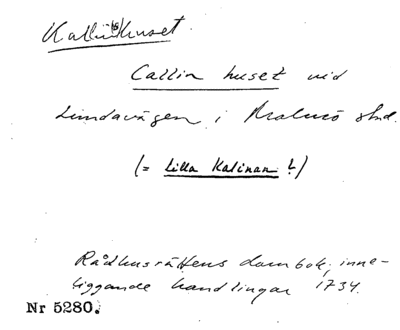 Kallinhuset.
Callin huset vid
Lundavägen i Malmö stad.
(= Lilla Kalinan ?)
Rådhusrättens dombok; inne-
liggande handlingar 1734.
Nr 5280.